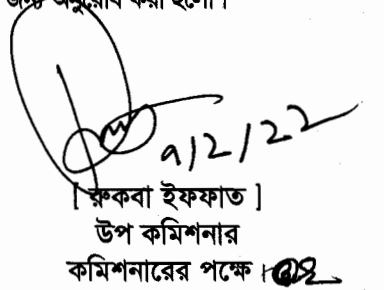 জন্য অনুরোধ করা হলো।
৭/2/22
[ রুকবা ইফফাত ]
উপ কমিশনার
কমিশনারের পক্ষে।